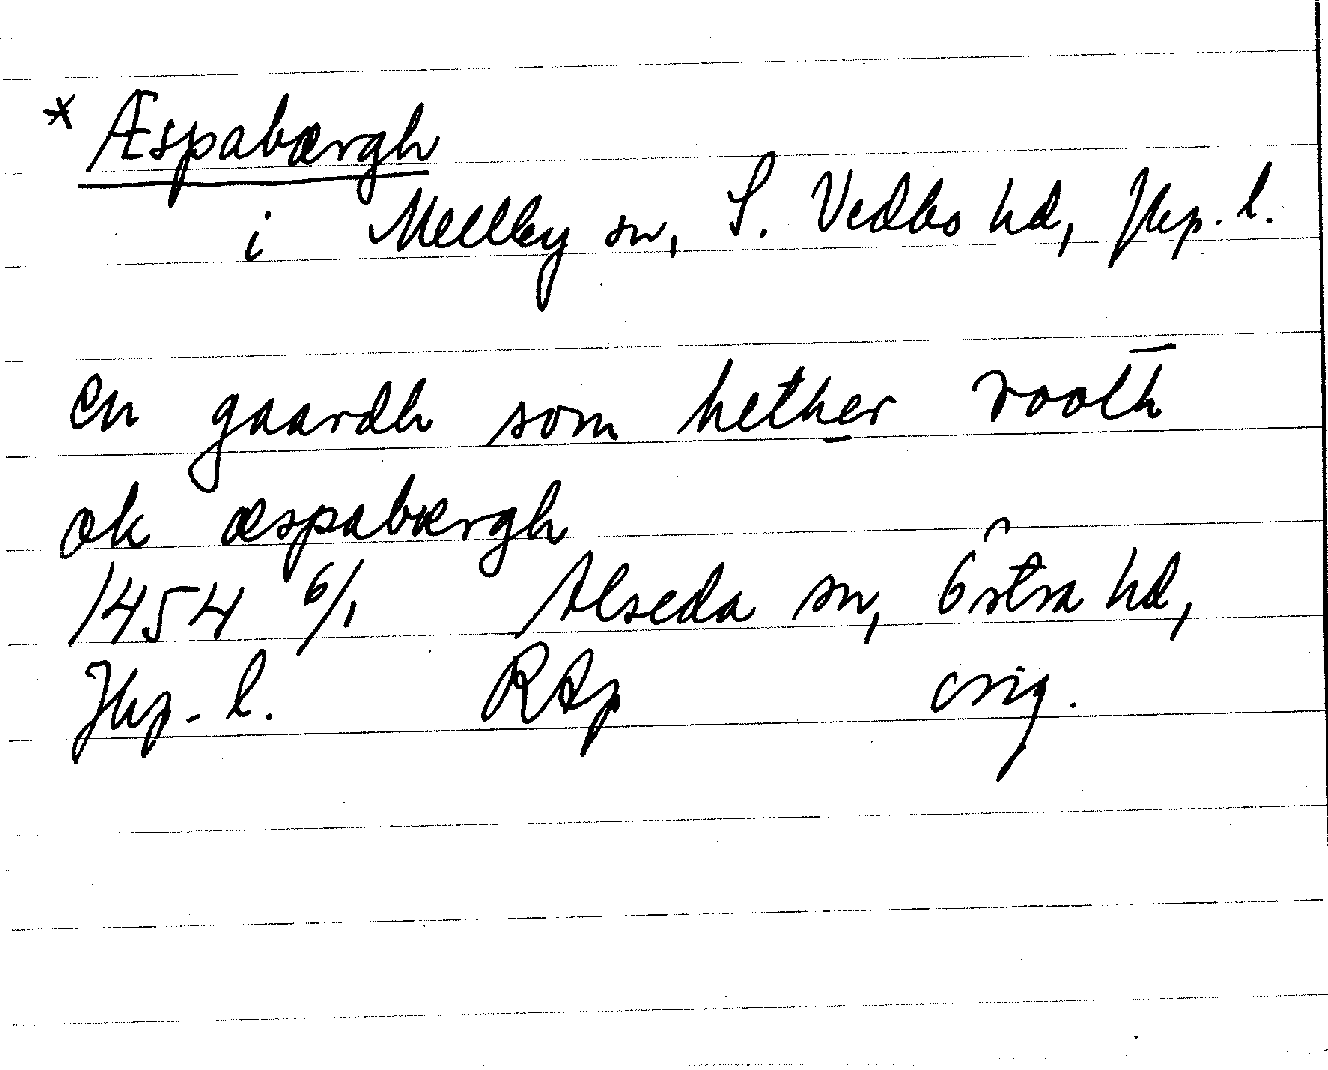 * Æspabærgh
i Mellby sn, S. Vedbo hd, Jkp. l.
en gaardh som hether rooth
ok æspabærgh
1454 6/1 Alseda sn, Östra hd,
Jkp. l. RAp orig.